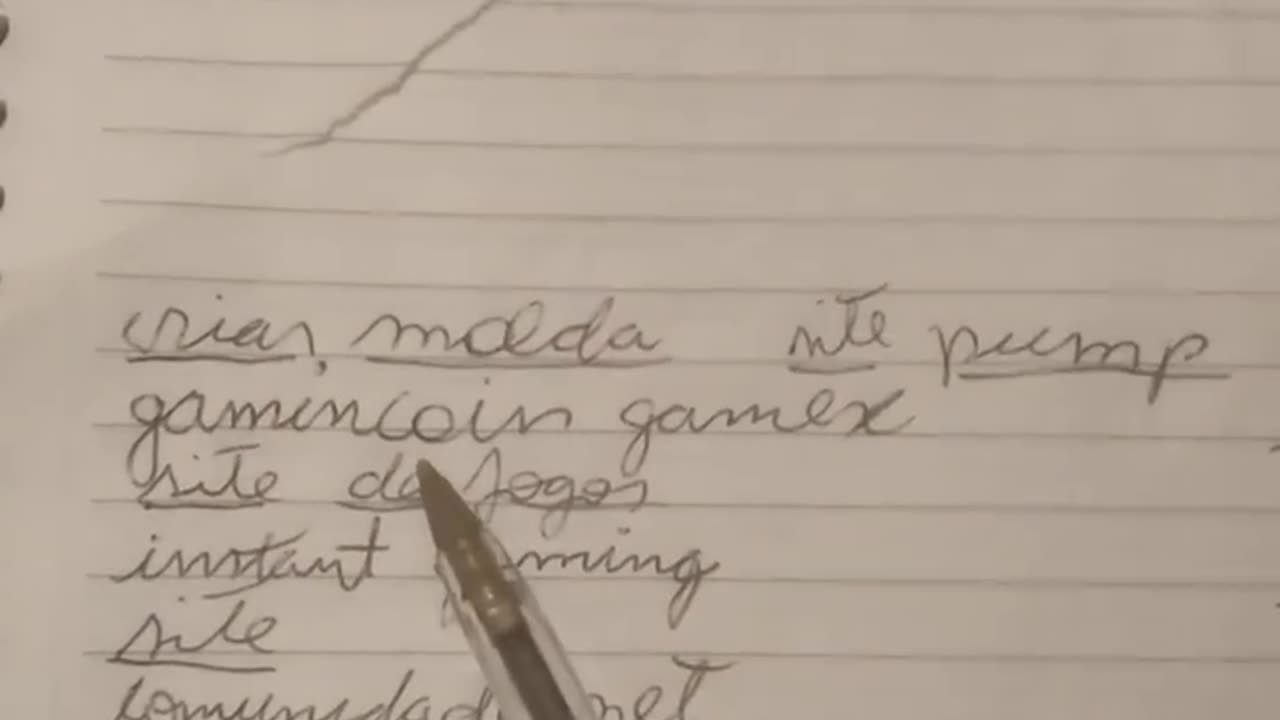 criar, moeda site pump
gamencoin gamex
site de jogos
instant gaming
site
comunidade net